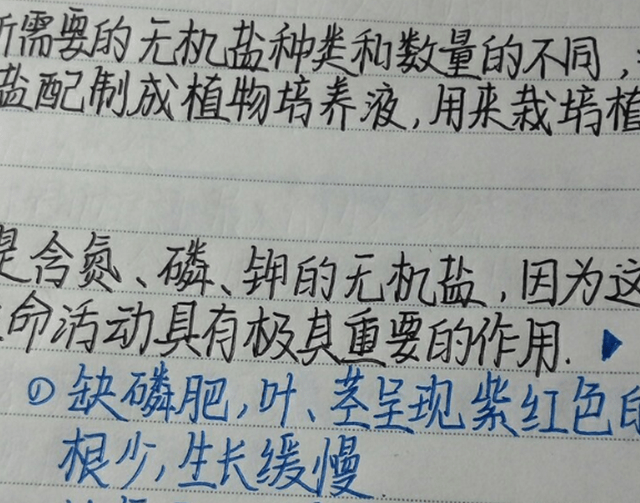 所需要的无机盐种类和数量的不同,
盐配制成植物培养液,用来栽培植
是含氮、磷、钾的无机盐,因为这
命活动具有极其重要的作用.
① 缺磷肥,叶、茎呈现紫红色的
根少,生长缓慢